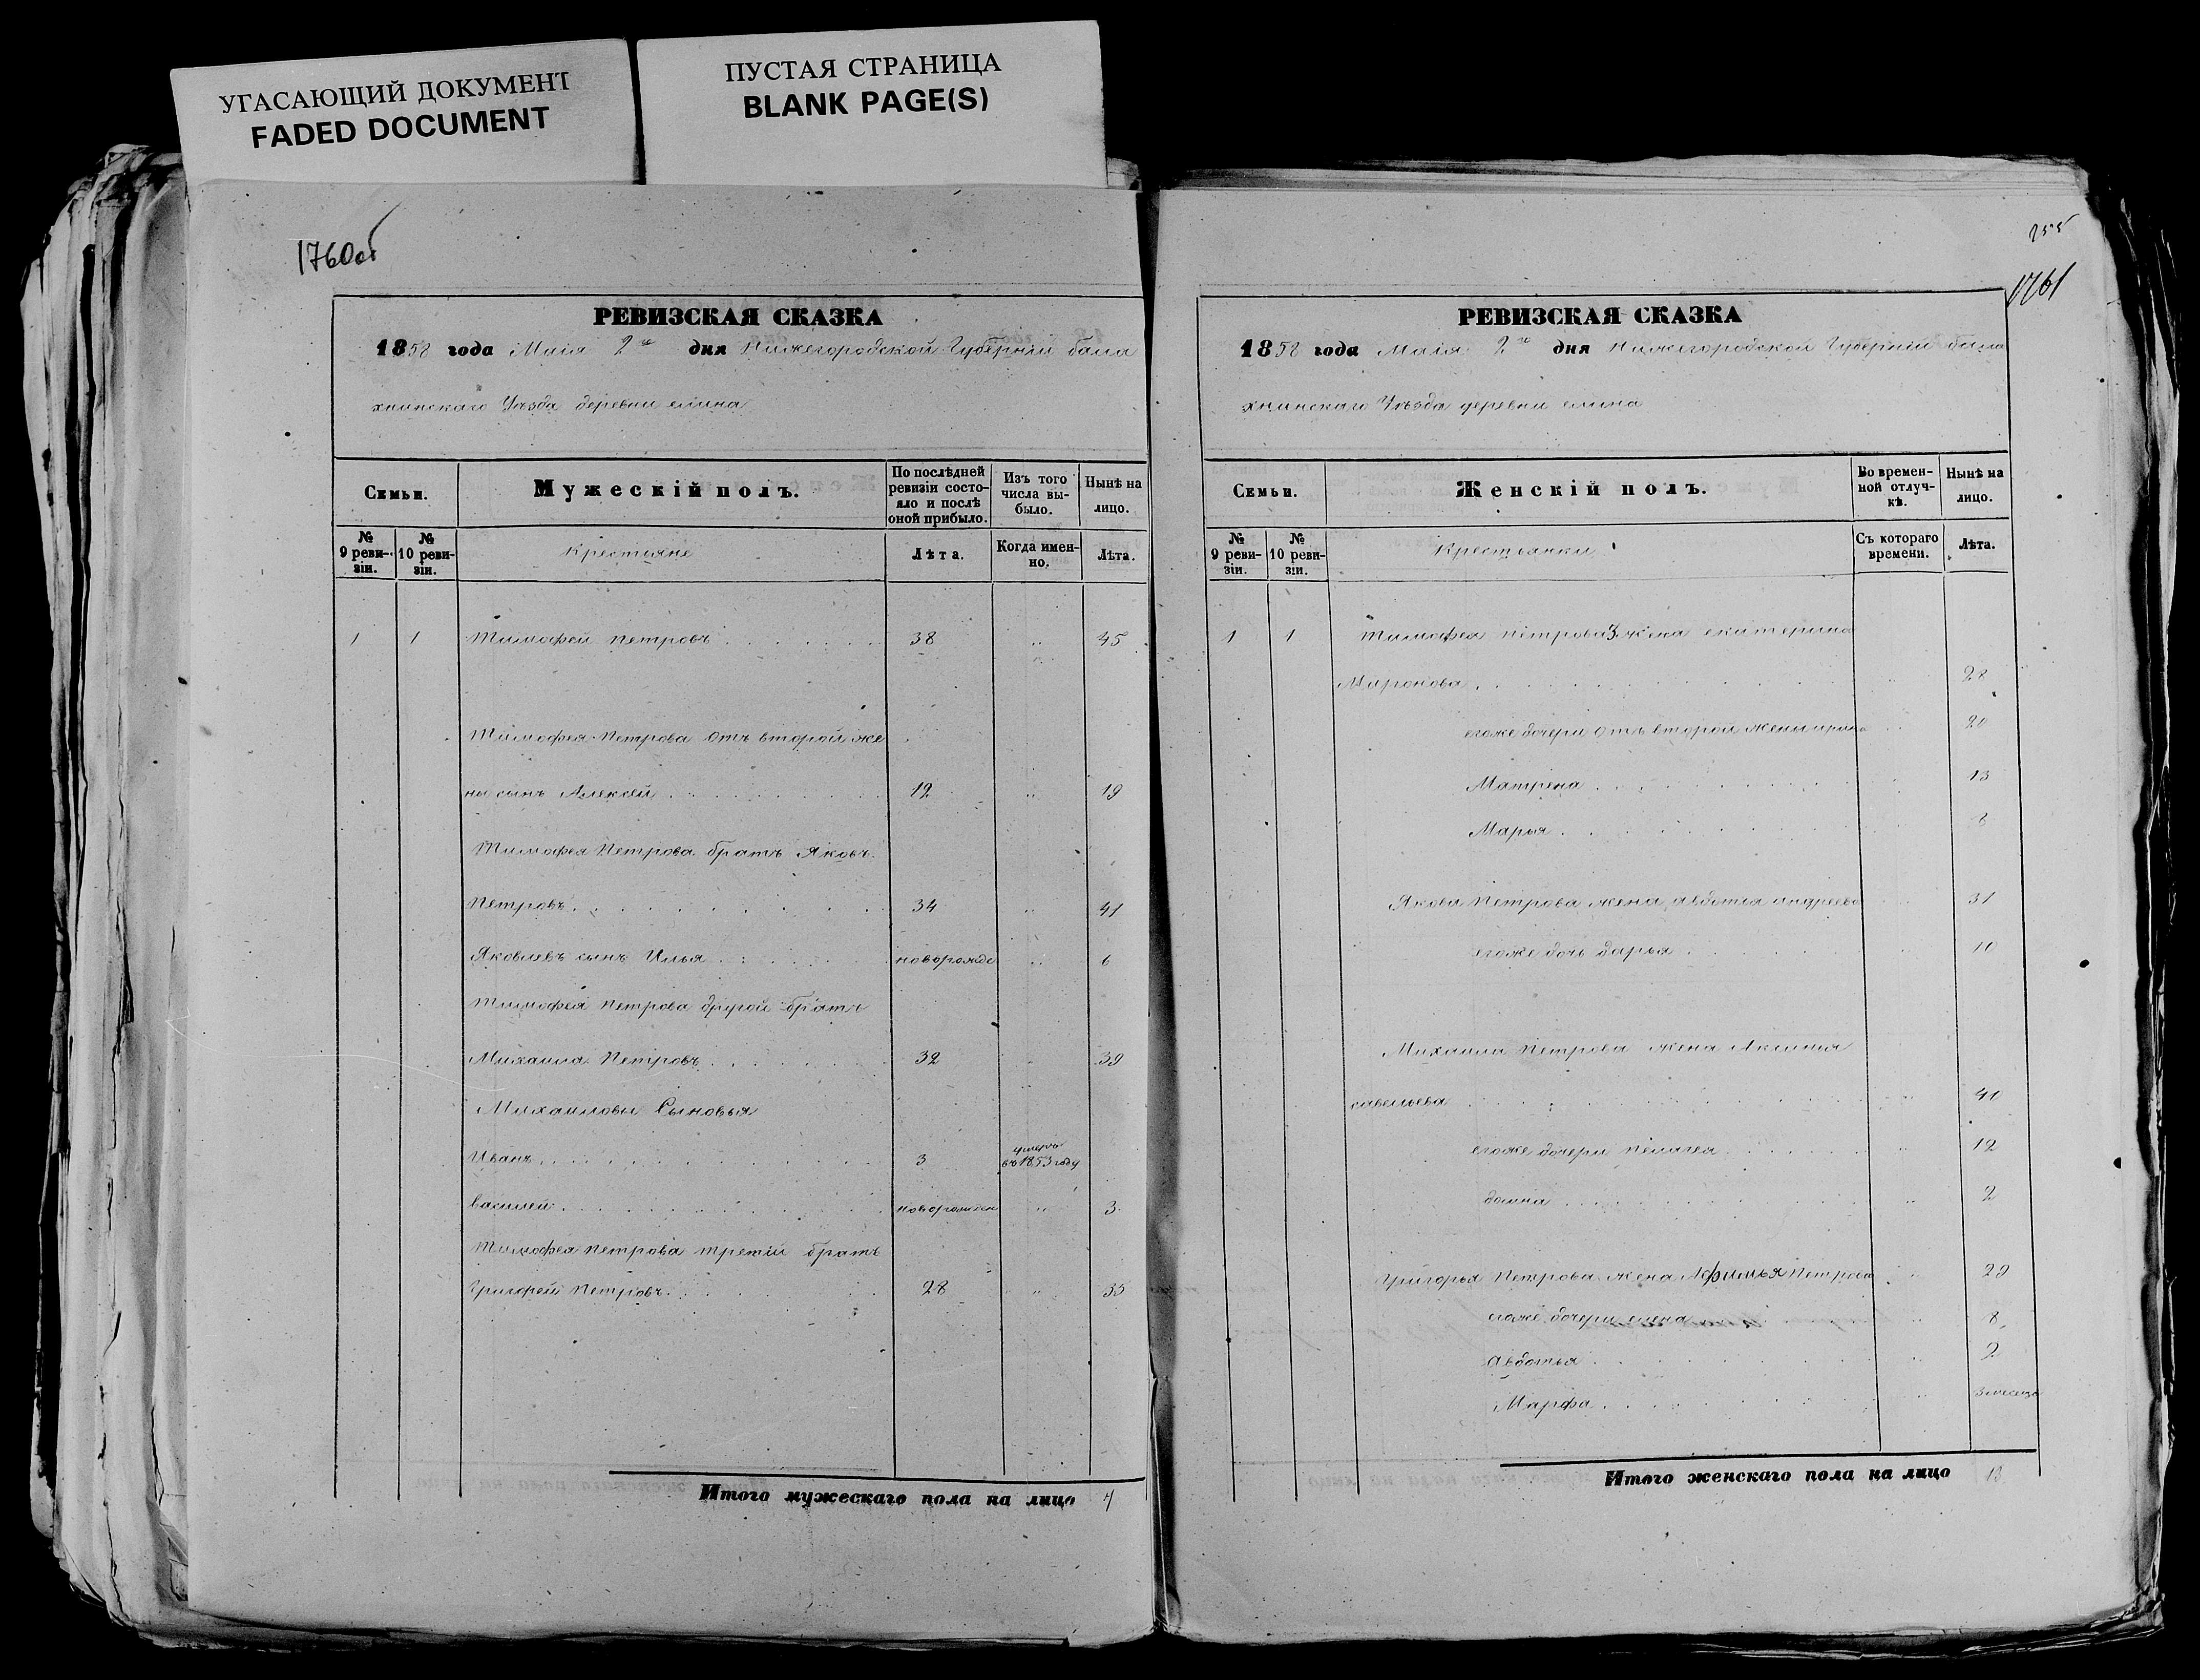 УГАСАЮЩИЙ ДОКУМЕНТ
FADED DOCUMENT
ПУСТАЯ СТРАНИЦА
BLANK PAGE(S)
1760об
РЕВИЗСКАЯ СКАЗКА
1858 года Маія 2го дня Нижегородской Губерніи бала
хнинскаго Уѣзда деревни елина
Семьи.
Мужескій полъ.
По послѣдней ревизіи состояло и послѣ оной прибыло.
Изъ того числа выбыло.
Нынѣ на лицо.
№ 9 ревизіи.
№ 10 ревизіи.
Крестьяне
Лѣта.
Когда именно.
Лѣта.
1 1 Тимофей Петровъ 38 „ 45
Тимофея Петрова отъ второй же
ны сынъ Алексѣй 12 „ 19
Тимофея Петрова братъ Яковъ
Петровъ 34 „ 41
Яковлевъ сынъ Илья новорожде „ 6
Тимофея Петрова другой братъ
Михаила Петровъ 32 „ 39
Михаиловы Сыновья
Иванъ 3 умеръ въ 1853 году
василей новорожден „ 3
Тимофея Петрова третій братъ
Григорей Петровъ 28 „ 35
Итого мужескаго пола на лицо 7
255
1761
РЕВИЗСКАЯ СКАЗКА
1858 года Маія 2го дня Нижегородской Губерніи бала
хнинскаго Уѣзда деревни елина
Семьи.
Женскій полъ.
Во временной отлучкѣ.
Нынѣ на лицо.
№ 9 ревизіи.
№ 10 ревизіи.
Крестьянки
Съ котораго времени.
Лѣта.
1 1 Тимофея петрова 3. жена екатерина
Миронова 28
егоже дочери отъ второй жены ирина 20
Матрена 13
Марья 8
Якова Петрова жена авдотья андреева 31
егоже дочь дарья 10
Михаила Петрова жена Аксинья
савельева 41
егоже дочери пелагея 12
домна „ 2
Григорья Петрова жена Афимья Петрова „ 29
егоже дочери елена „ 8
авдотья „ 2
Марфа „ 3 месеца
Итого женскаго пола на лицо 13